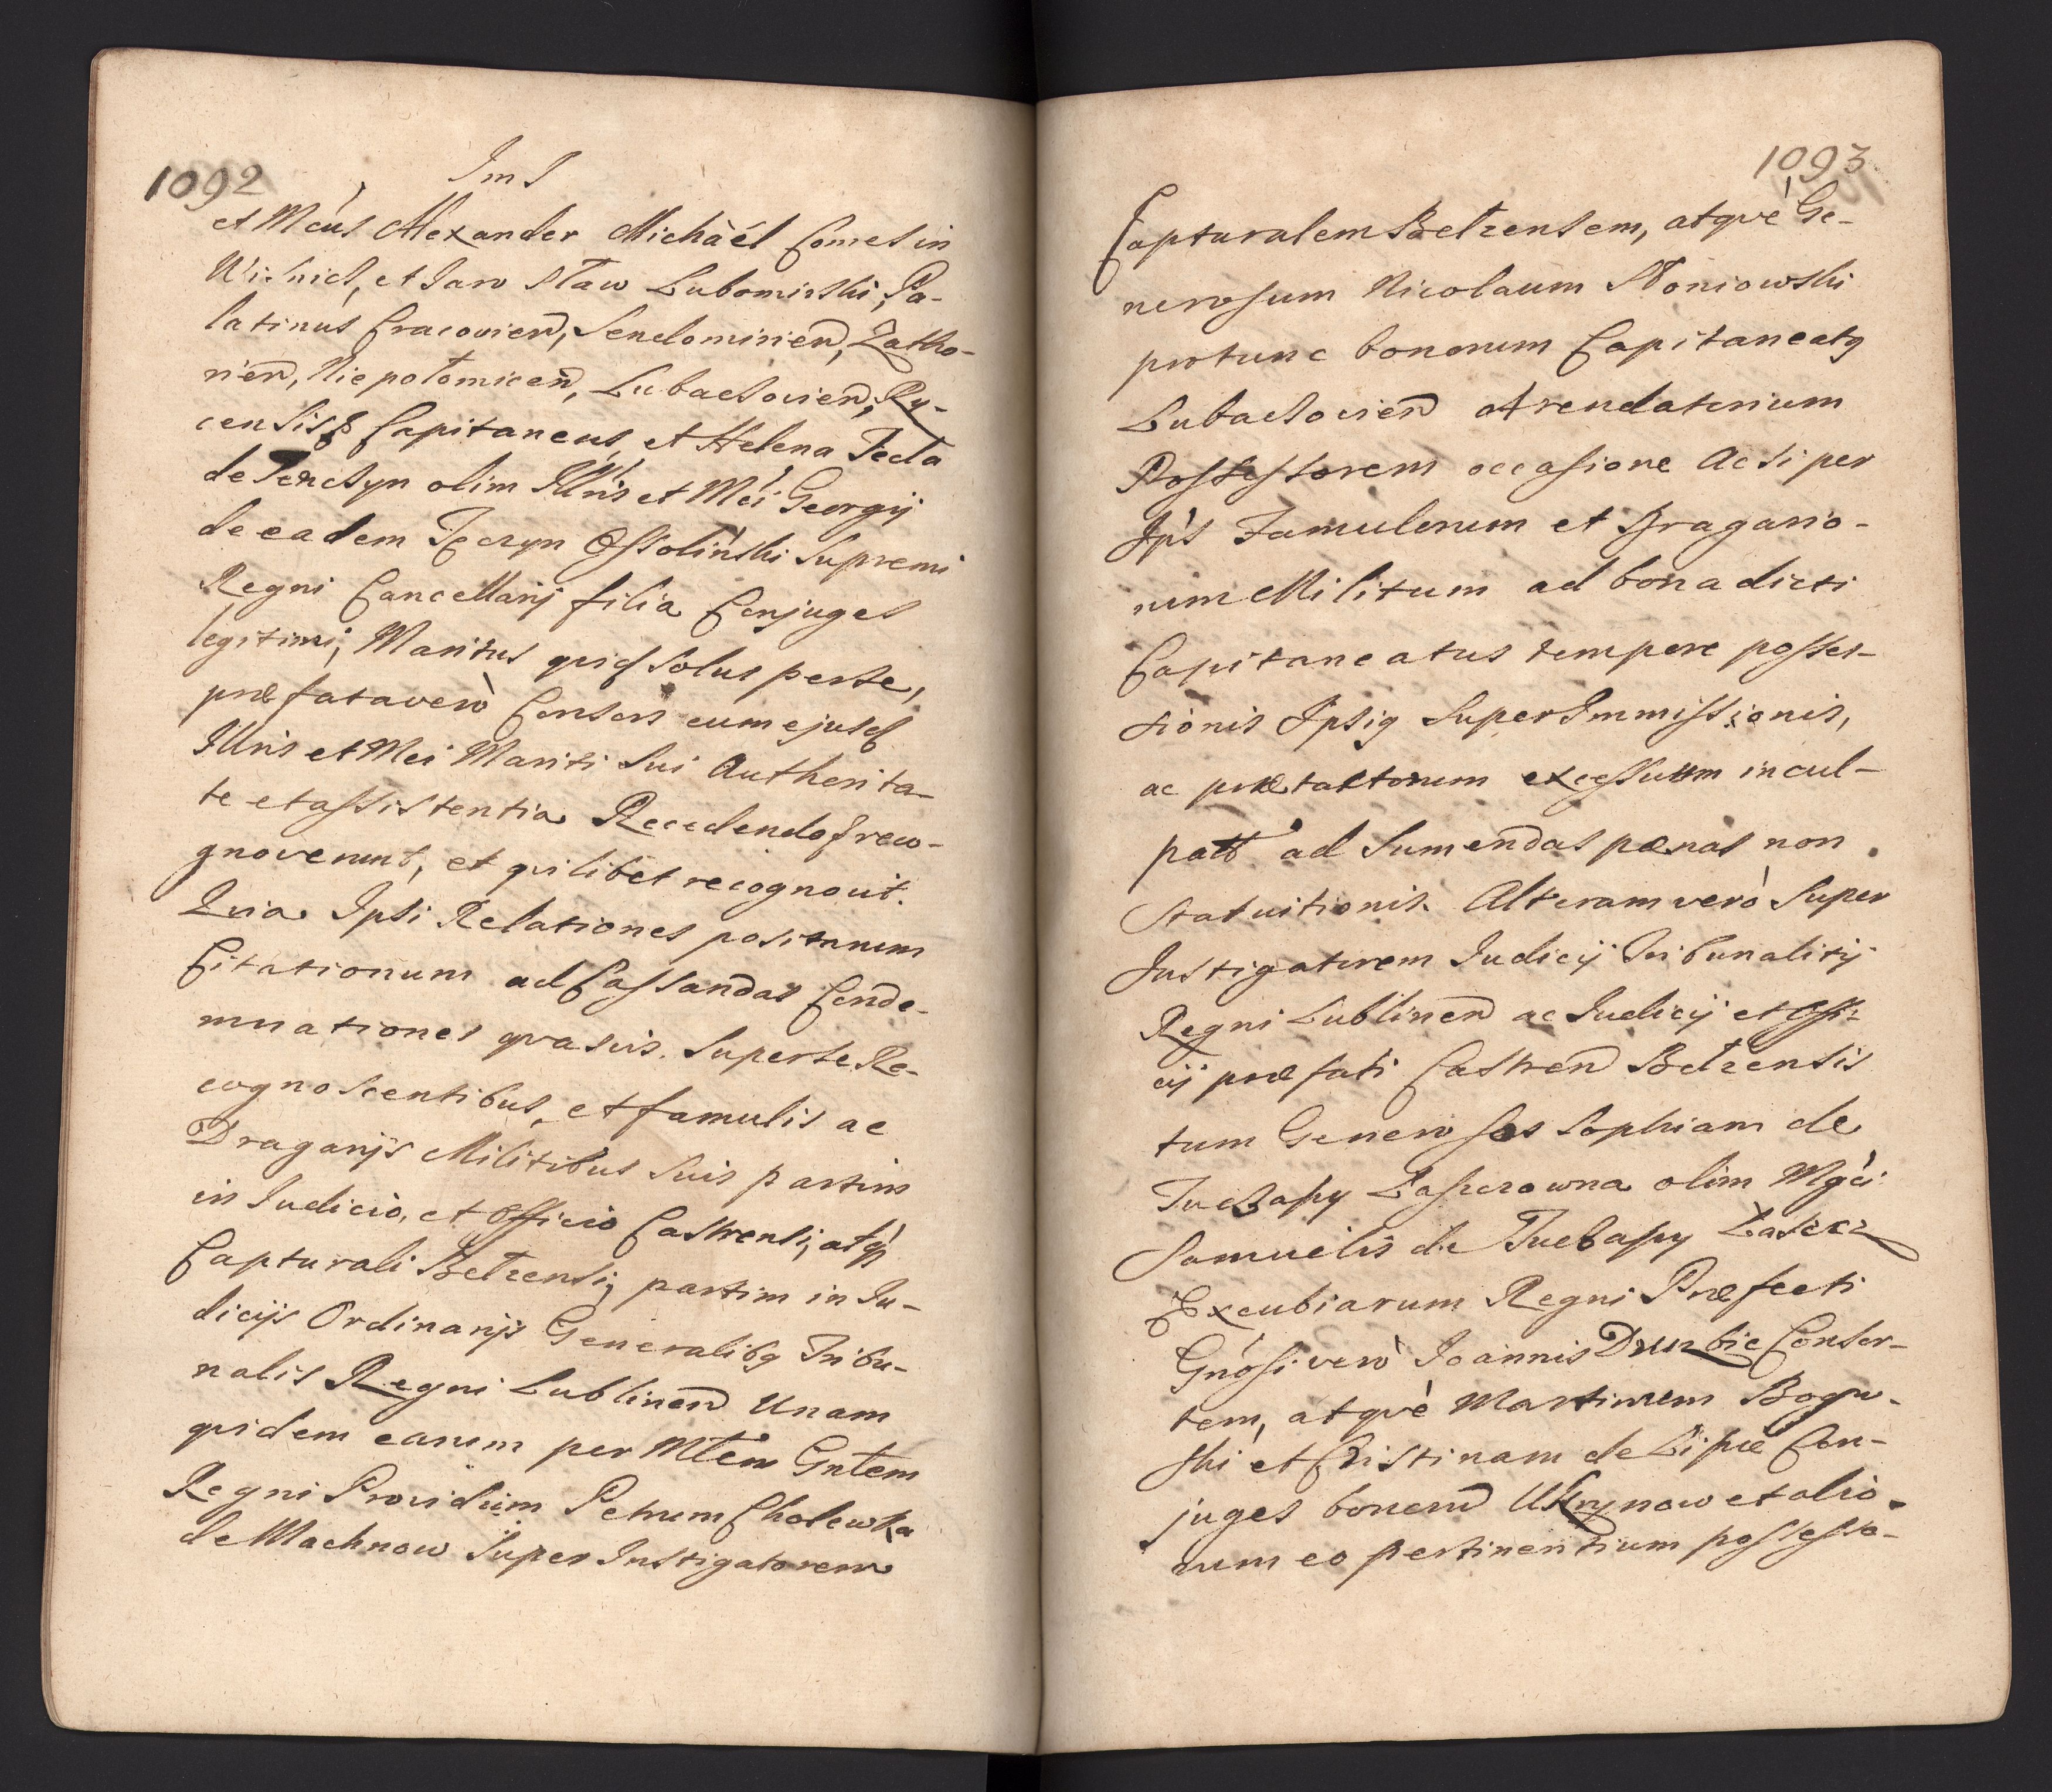 1092
Im I
et Mcus Alexander Michaël Comes in
Wisnicz, et Jaro Sław Lubomirski, Pa-
latinus Cracovien, Sendomirien, Zatho-
rien, Niepołomicen, Lubaczovien, Ry-
censisq Capitaneus, et Helena Tecla
de Tenczyn olim Illris et Mci Georgij
de eadem Teczyn Ossoliński Supremi
Regni Cancellarij filia Conjuges
legitimi, Maritus quid Solus per se,
præfata verò Consors cum ejusd
Illris et Mci Mariti Sui Authorita-
te et assistentia Recedendo reco-
gnoverunt, et quilibet recognovit.
Quia Ipsi Relationes positarum
Citationum ad Cassandas Conde-
mnationes quasvis. Super se Re-
cognoscentibus, et famulis ac
Draganijs Militibus Suis partim
in Judicio, et Officio Castrensi, atqz
Capturali Bełzensij partim in Ju-
dicijs Ordinarijs Generalibq Tribu-
nalis Regni Lublinen Unam
quidem earum per Mtem Gntem
Regni Providum Petrum Cholewka
de Machnow Super Instigatorem
1093
Capturalem Bełzensem, atqvè Ge-
nerosum Nicolaum Słoniowski
protunc bonorum Capitaneatq
Lubaczovien Arendatorium
Possessorem occasione Acsi per
Ips Famulorum et Dragano-
rum Militum ad bona dicti
Capitaneatus tempore posses-
sionis Ipsiq Super Immissionis,
ac prætactorum excessuum incul-
patt ad Sumendas pænas non
Statuitionis. Alteram verò Super
Instigatorem Judicij Tribunalitij
Regni Lublinen ac Judicij et Offi-
cij præfati Castren Bełzensis
tum Generosos Sophiam de
Tuczapy Łaszczowna olim Mgci
Samuelis de Tuczapy Łaszcz
Excubiarum Regni Præfecti
Gnosi verò Joannis Druzbic Consor-
tem, atqvè Martinum Bogu-
ski et Cristinam de Lipie Con-
juges bonorū Uhrynow et alio-
rum eo pertinentium possesso-